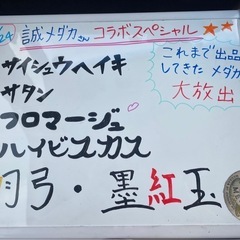 /24 誠メダカさん コラボスペシャル★★
これまで出品
してきた メダカ
大放出
サイシュウヘイキ
サタン
フロマージュ
ハイビスカス
弓・墨紅玉